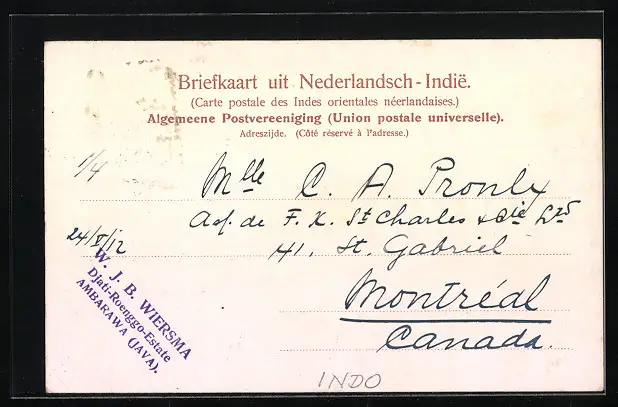 Briefkaart uit Nederlandsch-Indië.
(Carte postale des Indes orientales néerlandaises.)
Algemeene Postvereeniging (Union postale universelle).
Adreszijde. (Côté réservé à l'adresse.)
1/4
Mlle C. A.
de F. X. St Charles & Cie
24/V/12
41, St. Gabriel
Montréal
Canada.
W. J. B. WIERSMA
Djati-Roenggo-Estate
AMBARAWA (JAVA).
INDO